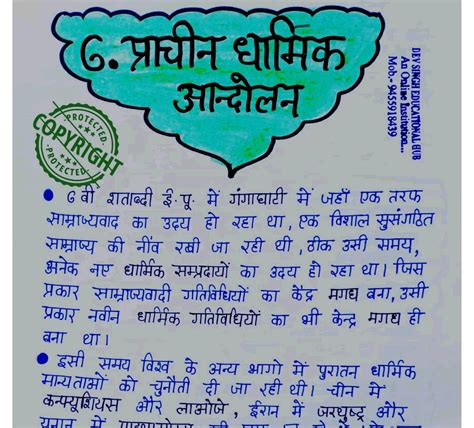 6. प्राचीन धार्मिक
आन्दोलन
DEV SINGH EDUCATIONAL HUB
An Online Institution...
Mob.- 9455918439
PROTECTED
COPYRIGHT
PROTECTED
● 6वीं शताब्दी ई.पू. में गंगाघाटी में जहाँ एक तरफ
साम्राज्यवाद का उदय हो रहा था, एक विशाल सुसंगठित
साम्राज्य की नींव रखी जा रही थी, ठीक उसी समय,
अनेक नए धार्मिक सम्प्रदायों का उदय हो रहा था। जिस
प्रकार साम्राज्यवादी गतिविधियों का केंद्र मगध बना, उसी
प्रकार नवीन धार्मिक गतिविधियों का भी केन्द्र मगध ही
बना था।
● इसी समय विश्व के अन्य भागो में पुरातन धार्मिक
मान्यताओं को चुनौती दी जा रही थी। चीन में
कन्फ्यूशियस और लाओजे, ईरान में जरथुष्ट्र और
यूनान में